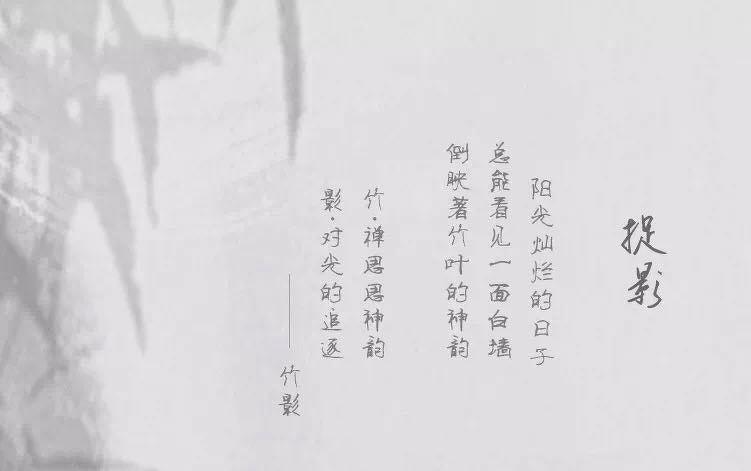 捉影
阳光灿烂的日子
总能看见一面白墙
倒映著竹叶的神韵
竹·禅思思神韵
影·对光的追逐
——竹影